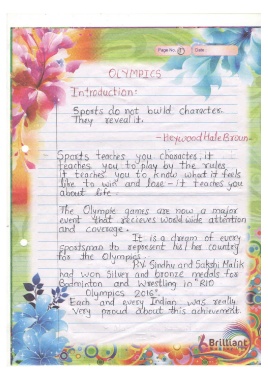 Page No. 1 Date:
OLYMPICS
Introduction:
Sports do not build character.
They reveal it.
-Heywood Hale Broun
Sports teaches you character, it
teaches you to play by the rules,
it teaches you to know what it feels
like to win and lose - it teaches you
about life.
The Olympic games are now a major
event that recieves world wide attention
and coverage.
It is a dream of every
sportsman to represent his/her country
for the Olympics.
P.V. Sindhu and Sakshi Malik
had won Silver and bronze medals for
Badminton and Wrestling in "RIO
Olympics 2016".
Each and every Indian was really
very proud about this achievement.
Brilliant